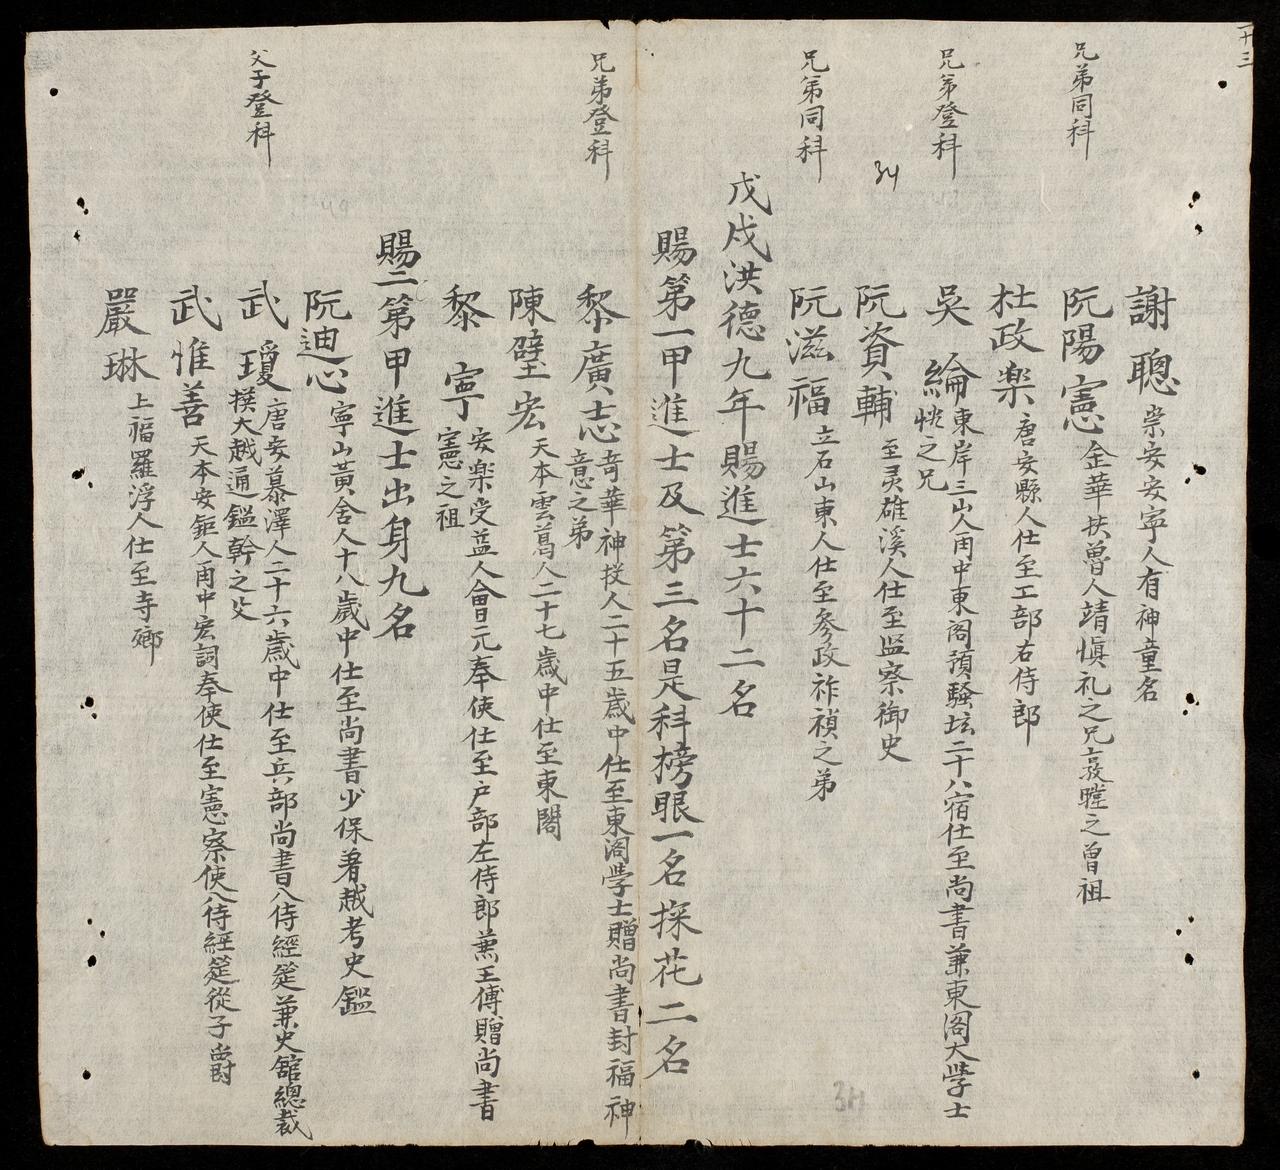 十三
謝聰 崇安安寧人有神童名
兄弟同科
阮陽憲 金華扶魯人靖慎礼之兄𢙇暀之曾祖
杜政楽 唐安縣人仕至工部右侍郎
兄弟登科
吳綸 東岸三山人再中東阁預騷坛二十八宿仕至尚書兼東阁大學士
忱之兄
34
阮資輔 至灵雄溪人仕至监察御史
兄弟同科
阮滋福 立石山東人仕至參政祚禎之弟
戊戌洪德九年賜進士六十二名
賜第一甲進士及第三名是科榜眼一名探花二名
兄弟登科
黎廣志 奇華神投人二十五歲中仕至東阁學士贈尚書封福神
意之弟
陳壁宏 天本雲葛人二十七歲中仕至東閣
黎寧 安楽受益人會元奉使仕至户部左侍郎兼王傅贈尚書
憲之祖
賜二第甲進士出身九名
阮迪心 寧山黃舍人十八歲中仕至尚書少保著越考史鑑
父子登科
武瓊 唐安慕澤人二十六歲中仕至兵部尚書入侍經筵兼史舘總裁
撰大越通鑑幹之父
武惟善 天本安鉅人再中宏詞奉使仕至憲察使入侍經筵從子爵
嚴琳 上福羅浮人仕至寺卿
34